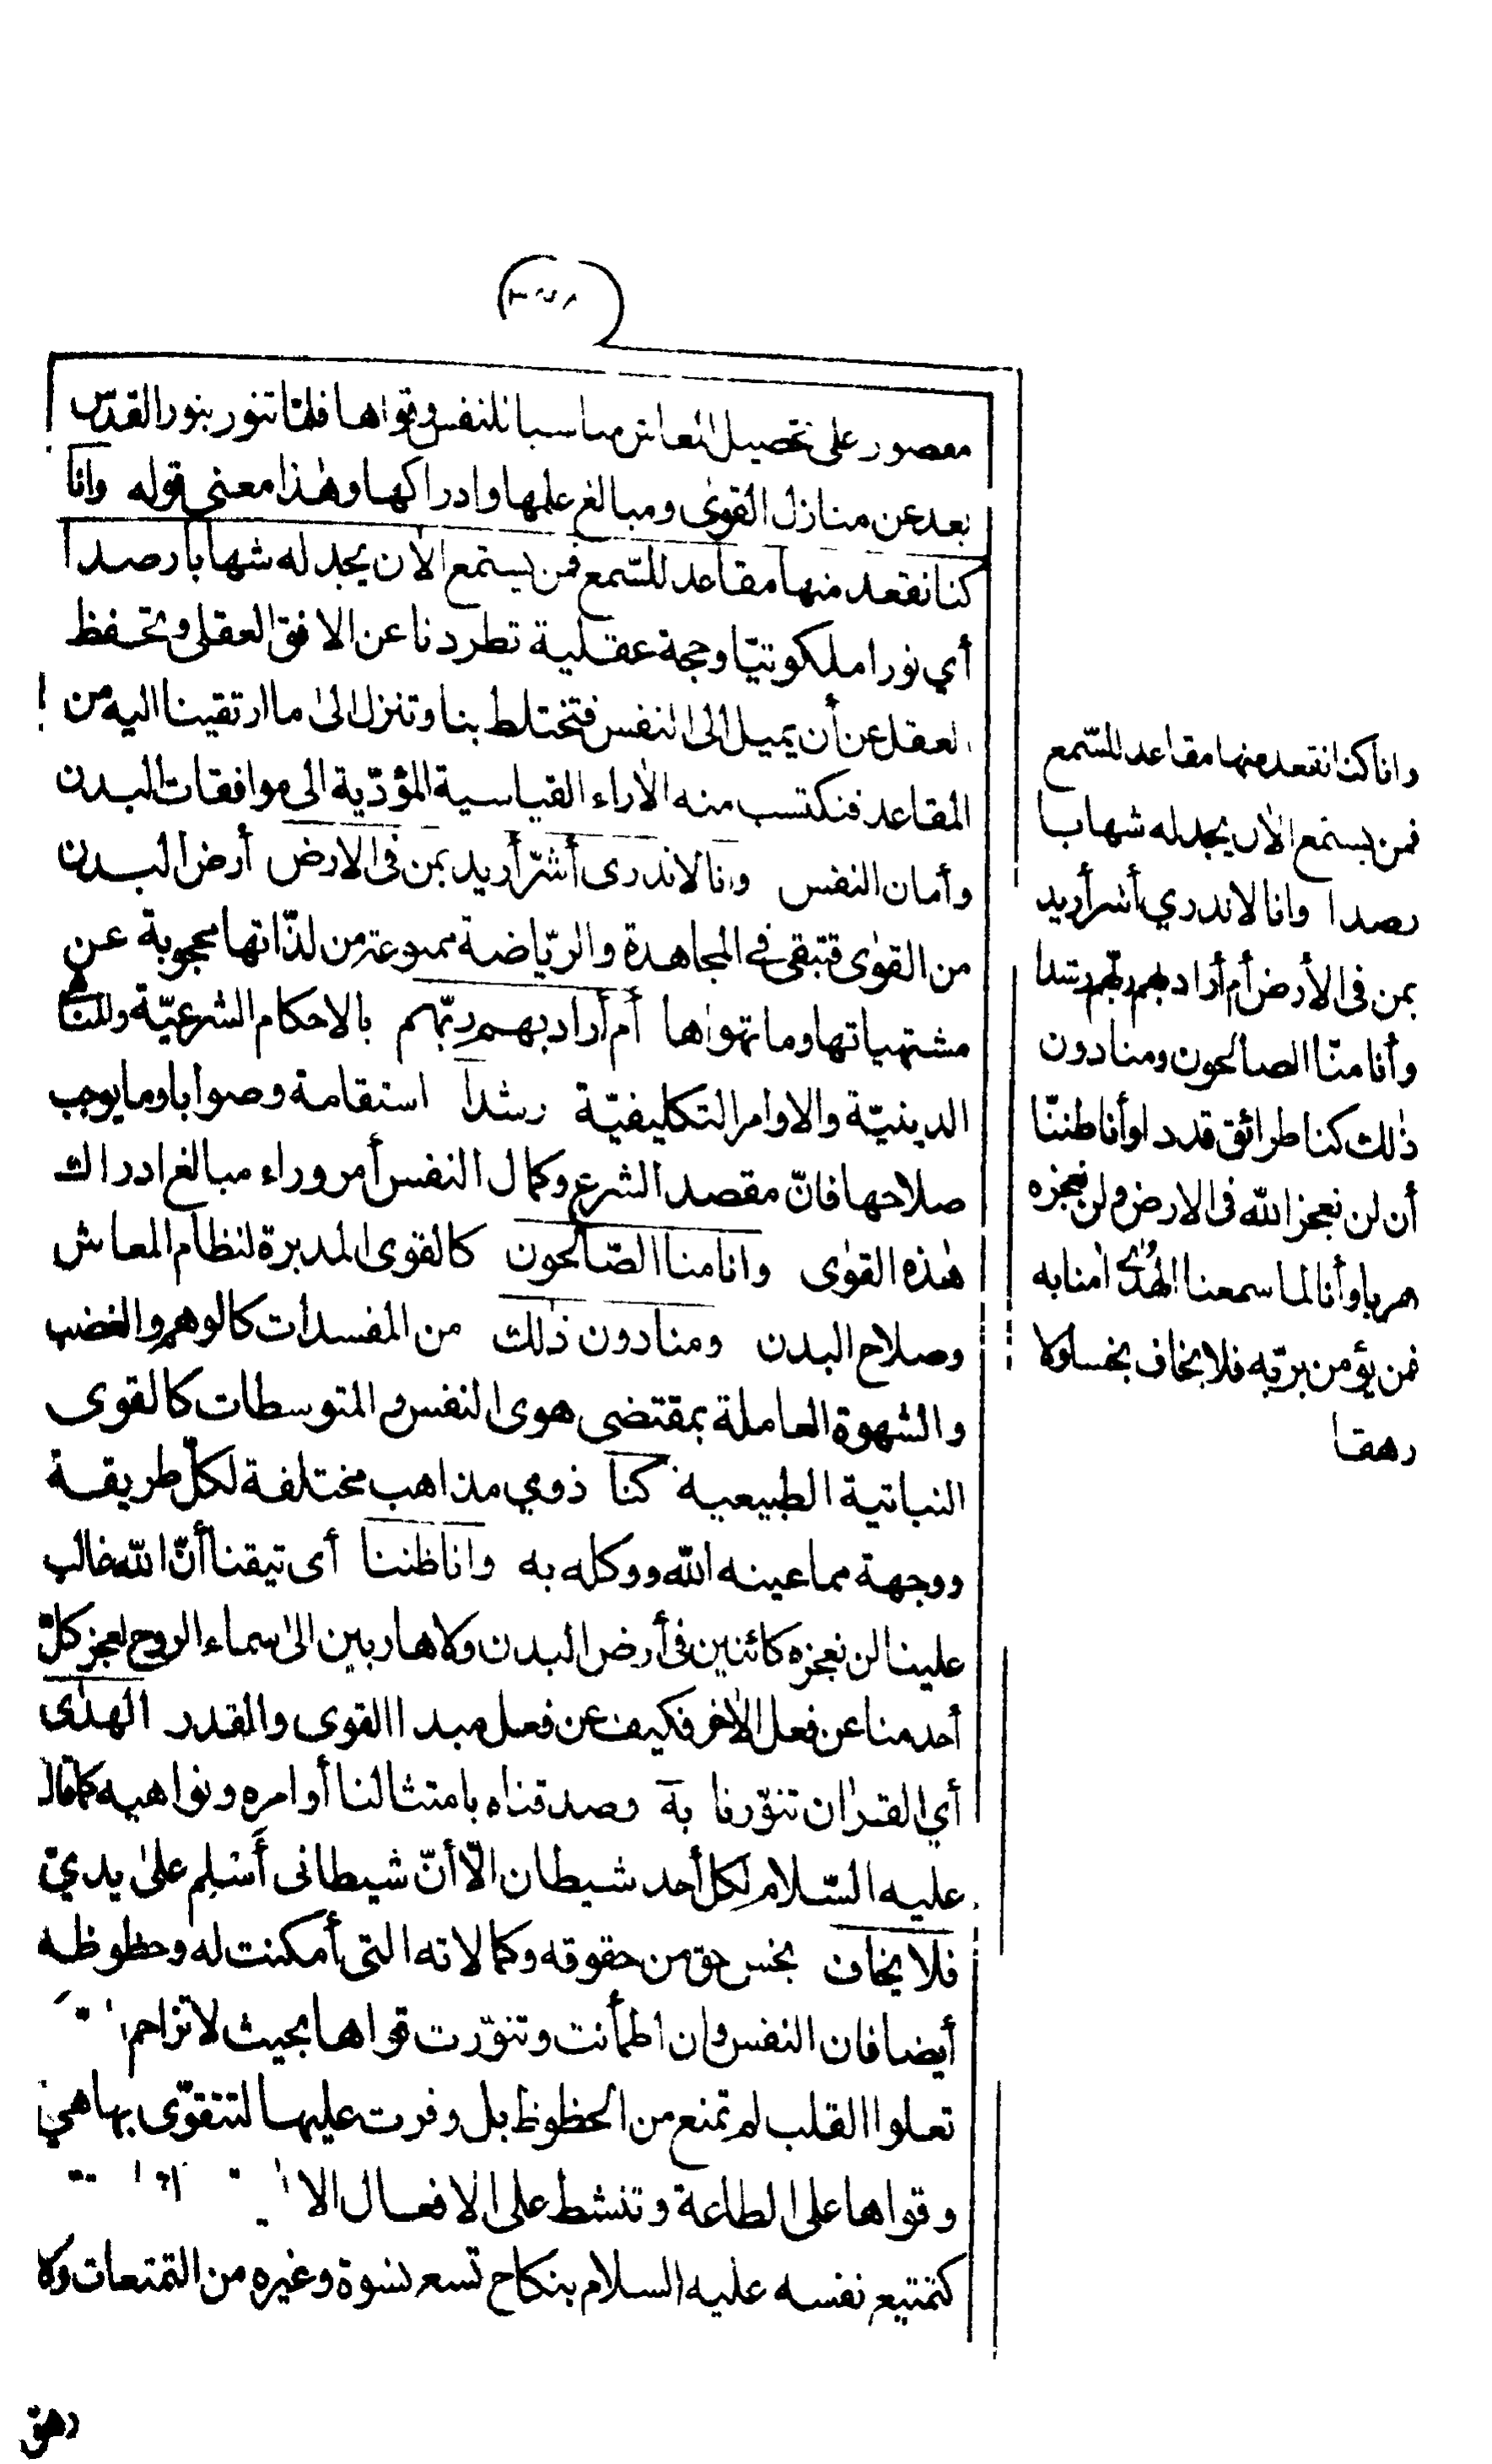 مقصور على تحصيل المعاش مناسبا للنفس وقواها فلما تنور بنور القدس
بعد عن منازل القوى ومبالغ علمها وادراكها وهذا معنى قوله وانا
كنا نقعد منها مقاعد للسمع فمن يستمع الآن يجد له شهابا رصدا
أي نورا ملكوتيا وحجة عقلية تطردنا عن الافق العقلى وتحفظ
لعقل عن أن يميل الى النفس فتختلط بنا وتنزل الى ما ارتقينا اليه من
المقاعد فنكتسب منه الآراء القياسية المؤدّية الى موافقات البدن
وأمان النفس وانا لاندرى أشرّ أريد بمن فى الارض أرض البدن
من القوى فتبقى في المجاهدة والرّياضة ممنوعة من لذّاتها محجوبة عن
مشتهياتها وما تهواها أم أراد بهم ربّهم بالاحكام الشرعيّة و
الدينيّة والاوامر التكليفيّة رشدا استقامة وصوابا وما يوجب
صلاحها فانّ مقصد الشرع وكمال النفس أمر وراء مبالغ ادراك
هذه القوى وانا منا الصّالحون كالقوى المدبرة لنظام المعاش
وصلاح البدن ومنا دون ذلك من المفسدات كالوهم والغضب
والشهوة العاملة بمقتضى هوى النفس والمتوسطات كالقوى
النباتية الطبيعية كنا ذوي مذاهب مختلفة لكلّ طريقة
ووجهة مما عينه الله ووكله به وانا ظننا أى تيقنا أنّ الله غالب
علينا لن نعجزه كائنين فى أرض البدن ولا هاربين الى سماء الروح لعجز كلّ
أحد منا عن فعل الآخر فكيف عن فعل مبدا القوى والقدر الهدى
أي القرآن تنوّرنا به وصدقناه بامتثالنا أوامره ونواهيه كما قال
عليه السّلام لكل أحد شيطان الّا أنّ شيطانى أَسْلَم على يديّ
فلا يخاف بخس حق من حقوقه وكمالاته التى أمكنت له وحظوظه
أيضا فان النفس وان اطمأنت وتنوّرت قواها بحيث لا تزاحم
تعلوا القلب لم تمنع من الحظوظ بل وفرت عليها لتتقوّى بها هي
وقواها على الطاعة وتنشط على الافعال الا
كتمتيع نفسه عليه السلام بنكاح تسع نسوة وغيره من التمتعات ولا
رهق
وانا كنا نقعد منها مقاعد للسّمع
فمن يستمع الآن يجد له شهابا
رصدا وانا لاندري أشر أريد
بمن فى الأرض أم أراد بهم ربّهم رشدا
وأنا منّا الصالحون ومنا دون
ذلك كنا طرائق قددا وأنا ظننّا
أن لن نعجز الله فى الارض ولن نعجزه
هربا وأنا لما سمعنا الهُدى آمنا به
فمن يؤمن بربّه فلا يخاف بخسا ولا
رهقا